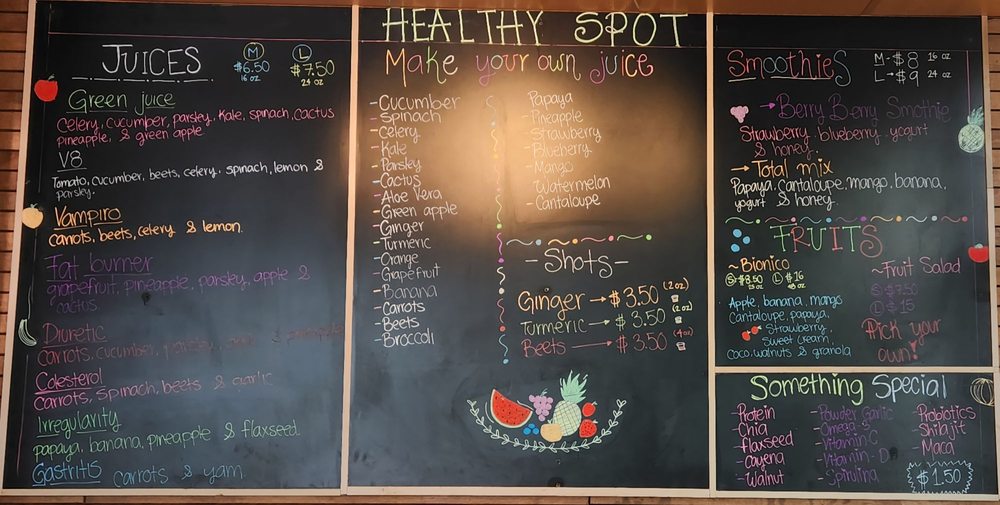 HEALTHY SPOT
JUICES
M
$6.50
16 oz
L
$7.50
24 oz
Green juice
Celery, cucumber, parsley, Kale, spinach, cactus
pineapple, & green apple
V8
Tomato, cucumber, beets, celery, spinach, lemon &
parsley.
Vampiro
carrots, beets, celery & lemon.
Fat burner
grapefruit, pineapple, parsley, apple &
cactus.
Diuretic
carrots, cucumber, parsley,
Colesterol
carrots, spinach, beets & garlic
Irregularity
papaya, banana, pineapple & flaxseed.
Gastritis carrots & yam
Make your own juice
-Cucumber
-Spinach
-Celery
-Kale
-Parsley
-Cactus
-Aloe Vera
-Green apple
-Ginger
-Turmeric
-Orange
-Grapefruit
-Banana
-Carrots
-Beets
-Broccoli
Papaya
-Pineapple
-Strawberry
-Blueberry
-Mango
-Watermelon
-Cantaloupe
-Shots-
Ginger → $3.50 (2oz)
Turmeric → $3.50 (2oz)
Beets → $3.50 (4oz)
Smoothies
M-$8 16 oz
L→$9 24 oz
→Berry Berry Smothie
Strawberry, blueberry, yogurt
& honey.
→Total mix
Papaya, Cantaloupe, mango, banana,
yogurt & honey.
FRUITS
~Bionico
S $8.50 L $16
Apple, banana, mango
Cantaloupe, papaya,
Strawberry,
Sweet cream,
coco, walnuts & granola
~Fruit Salad
S $7.50
L $15
Pick your
own!
Something Special
-Protein
-Chia
-Flaxseed
-Cayena
-Walnut
-Powder Garlic
-Omega-3
-Vitamin-C
-Vitamin-D
-Spirulina
-Probiotics
-Shilajit
-Maca
$1.50